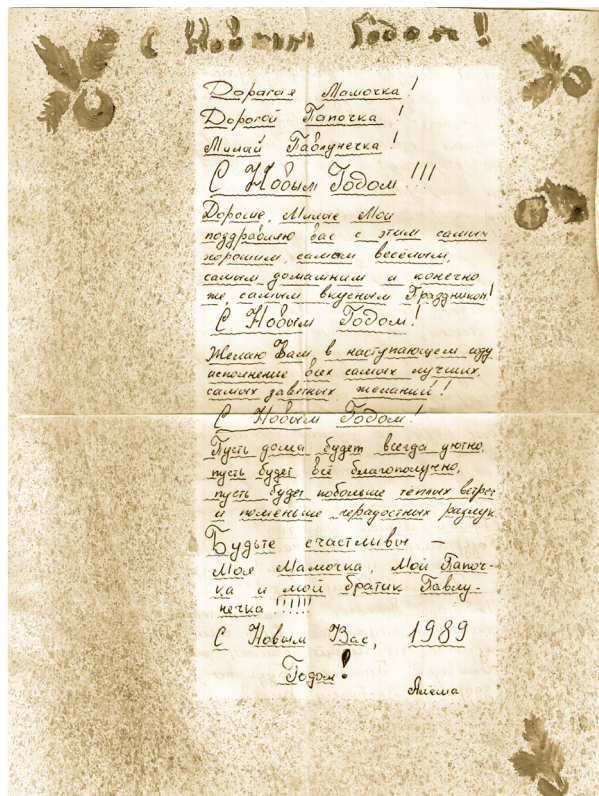 С Новым Годом!
Дорогая Мамочка!
Дорогой Папочка!
Милай Павлунечка!
С Новым Годом!!!
Дорогие, Милые Мои
поздравляю вас с этим самым
хорошим, самым весёлым,
самым домашним и конечно
же, самым вкусным Праздником!
С Новым Годом!
Желаю Вам в наступающем году
исполнение всех самых лучших,
самых заветных желаний!
С Новым Годом!
Пусть дома будет всегда уютно,
пусть будет всё благополучно,
пусть будет побольше тёплых встреч
и поменьше нерадостных разлук
Будьте счастливы —
Моя Мамочка, Мой Папоч-
ка и мой братик Павлу-
нечка !!!!!!
С Новым Вас, 1989
Годом!